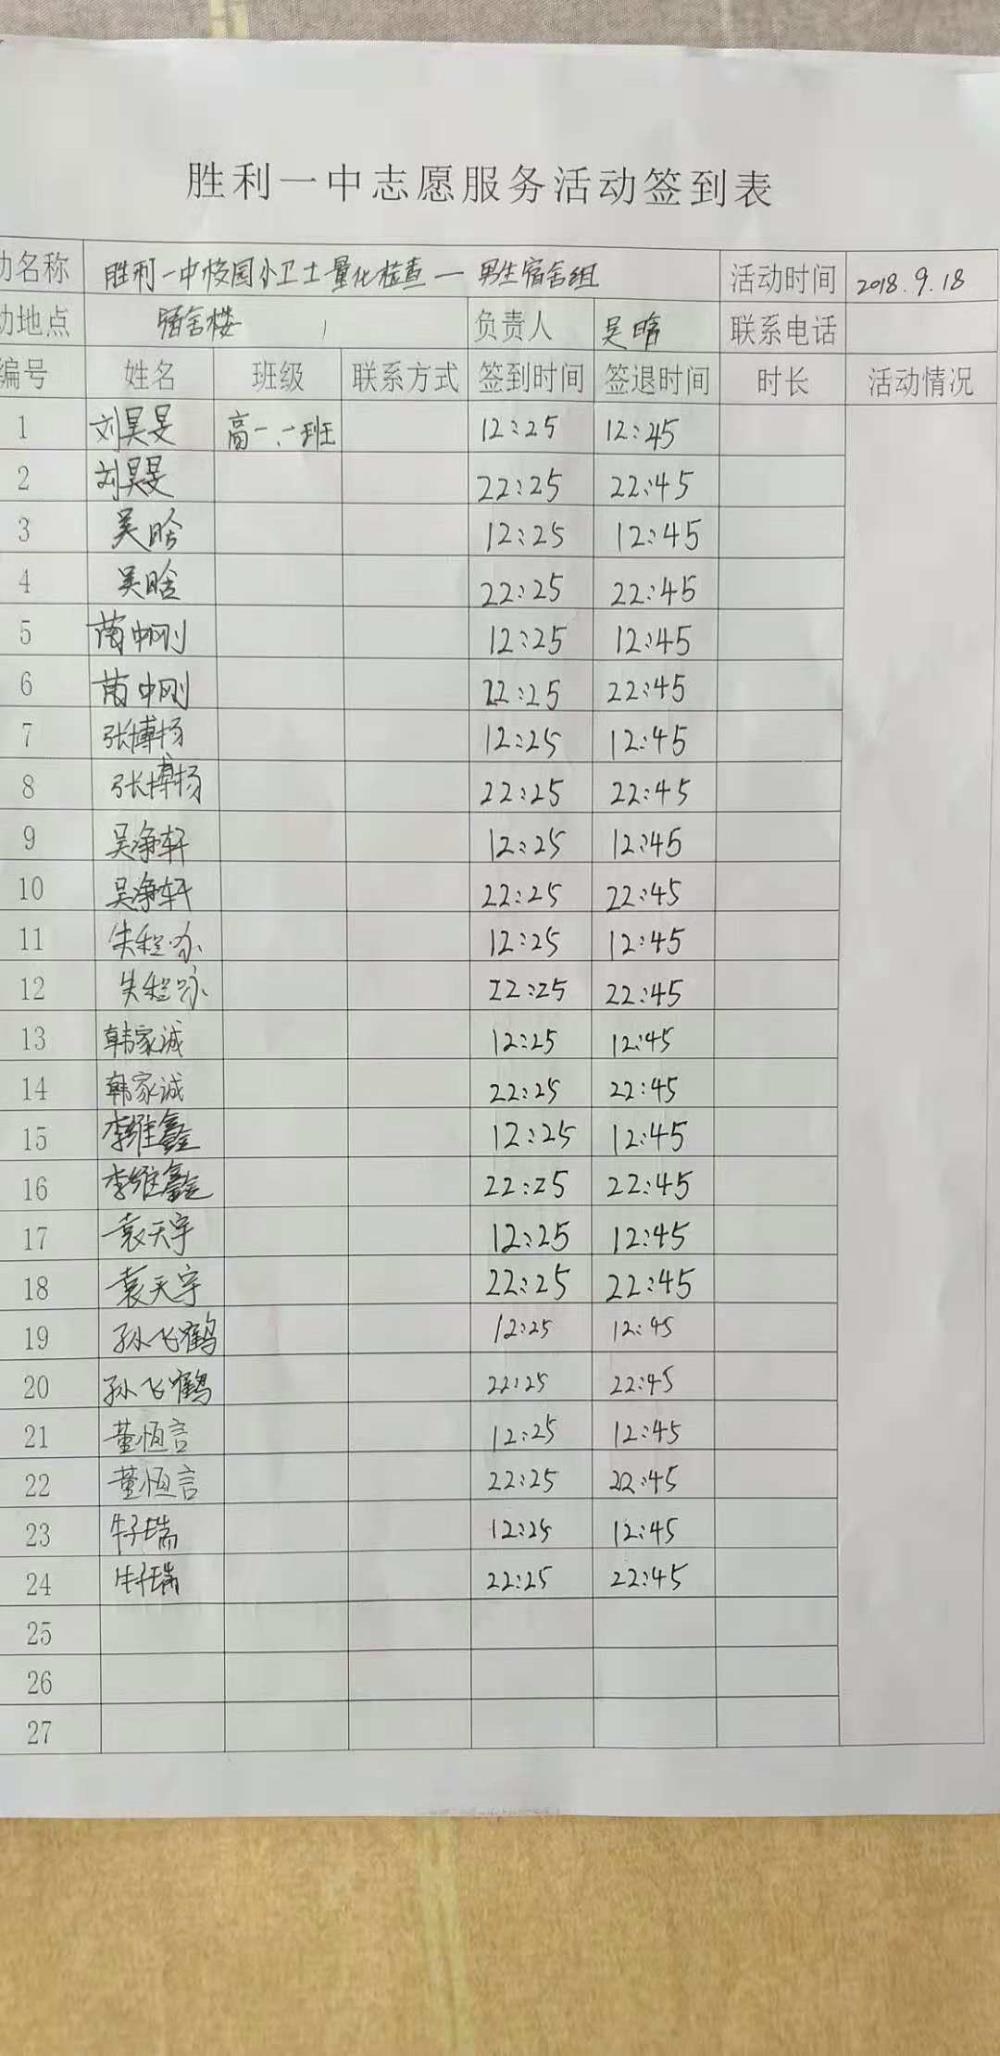 胜利一中志愿服务活动签到表
动名称 胜利一中校园小卫士量化检查—男生宿舍组 活动时间 2018.9.18
动地点 宿舍楼 负责人 吴晗 联系电话
编号 姓名 班级 联系方式 签到时间 签退时间 时长 活动情况
1 刘昊旻 高一.一班 12:25 12:45
2 刘昊旻 22:25 22:45
3 吴晗 12:25 12:45
4 吴晗 22:25 22:45
5 12:25 12:45
6 22:25 22:45
7 张博扬 12:25 12:45
8 张博扬 22:25 22:45
9 吴净轩 12:25 12:45
10 吴净轩 22:25 22:45
11 12:25 12:45
12 22:25 22:45
13 韩家诚 12:25 12:45
14 韩家诚 22:25 22:45
15 李维鑫 12:25 12:45
16 李维鑫 22:25 22:45
17 袁天宇 12:25 12:45
18 袁天宇 22:25 22:45
19 孙飞鹤 12:25 12:45
20 孙飞鹤 22:25 22:45
21 董恒言 12:25 12:45
22 董恒言 22:25 22:45
23 牛子瑞 12:25 12:45
24 牛子瑞 22:25 22:45
25
26
27